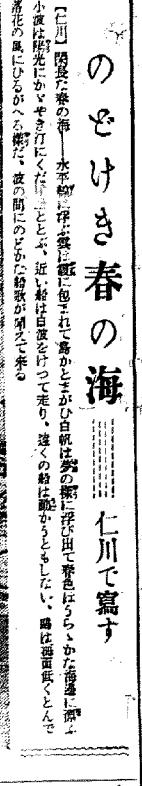 のどけき春の海
仁川で寫す
【仁川】閑長な春の海――水平線に浮ぶ雲は霞に包まれて島かとまがひ白帆は夢の樣に浮び出て春色はうらゝかな海邊に漂ふ
小波は陽光にかゞやき汀にくだ とぶ、近い船は白波をけつて走り、遠くの船は動かうともしない、鷗は海面低くとんで
落花の風にひるがへる樣だ、波の間にのどかな船歌が聞えて來る